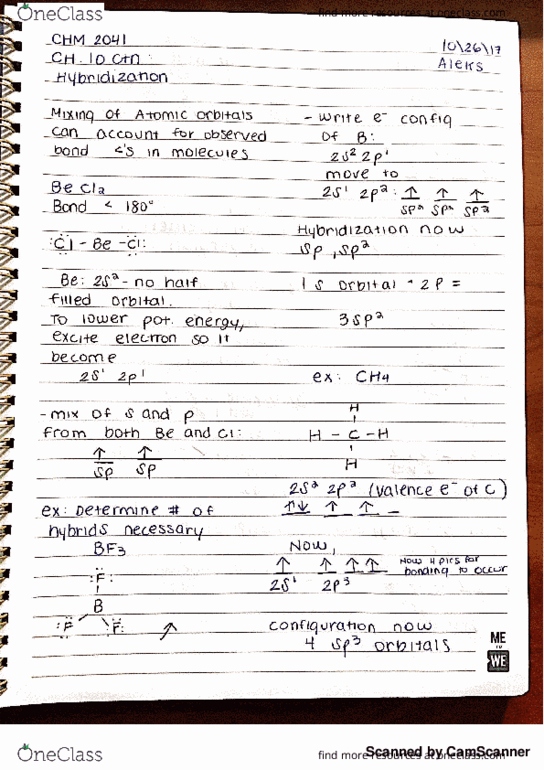 OneClass
find more resources at oneclass.com
CHM 2041
CH. 10 ctn:
Hybridization
10\26\17
Aleks
Mixing of Atomic orbitals
can account for observed
bond <'s in molecules
BeCl₂
Bond < 180°
:Cl - Be - Cl:
Be: 2S² - no half
filled orbital.
To lower pot. energy,
excite electron so it
become
2S¹ 2p¹
- mix of s and p
from both Be and Cl:
↑ ↑
sp sp
ex: Determine # of
hybrids necessary
BF3
:F:
B
:F: :F:
- write e⁻ config
of B:
2s² 2p¹
move to
2s¹ 2p²: ↑ ↑ ↑
sp² sp² sp²
Hybridization now
sp, sp²
1 s orbital + 2 P =
3sp²
ex: CH4
H
H - C - H
H
2S² 2p² (valence e⁻ of C)
↑↓ ↑ ↑ _
Now,
↑ ↑ ↑ ↑
2S¹ 2p³
Now 4 pics for
bonding to occur
configuration now
4 sp³ orbitals
ME
TO
WE
OneClass
find more resources at oneclass.com
Scanned by CamScanner